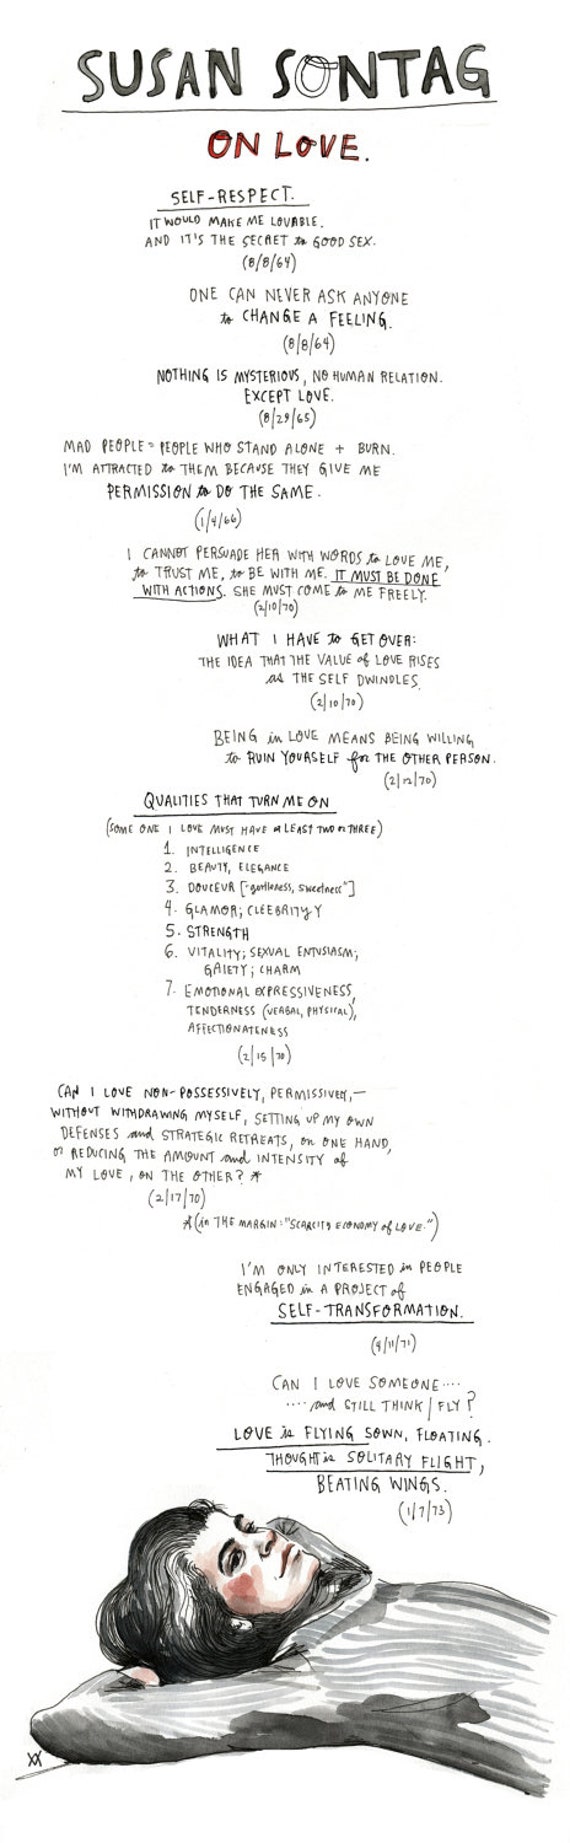 SUSAN SONTAG
ON LOVE.
SELF-RESPECT.
IT WOULD MAKE ME LOVABLE.
AND IT'S THE SECRET to GOOD SEX.
(8/8/64)
ONE CAN NEVER ASK ANYONE
to CHANGE A FEELING.
(8/8/64)
NOTHING IS MYSTERIOUS, NO HUMAN RELATION.
EXCEPT LOVE.
(8/29/65)
MAD PEOPLE = PEOPLE WHO STAND ALONE + BURN.
I'M ATTRACTED to THEM BECAUSE THEY GIVE ME
PERMISSION to DO THE SAME.
(1/4/66)
I CANNOT PERSUADE HER WITH WORDS to LOVE ME,
to TRUST ME, to BE WITH ME. IT MUST BE DONE
WITH ACTIONS. SHE MUST COME to ME FREELY.
(2/10/70)
WHAT I HAVE to GET OVER:
THE IDEA THAT THE VALUE of LOVE RISES
as THE SELF DWINDLES.
(2/10/70)
BEING in LOVE MEANS BEING WILLING
to RUIN YOURSELF for THE OTHER PERSON.
(2/12/70)
QUALITIES THAT TURN ME ON
(SOME ONE I LOVE MUST HAVE at LEAST TWO or THREE)
1. INTELLIGENCE
2. BEAUTY, ELEGANCE
3. DOUCEUR ["gentleness, sweetness"]
4. GLAMOR; CLEEBRITYY
5. STRENGTH
6. VITALITY; SEXUAL ENTUSIASM;
GAIETY; CHARM
7. EMOTIONAL EXPRESSIVENESS,
TENDERNESS (VERBAL, PHYSICAL),
AFFECTIONATENESS
(2/15/70)
CAN I LOVE NON-POSSESSIVELY, PERMISSIVELY,—
WITHOUT WITHDRAWING MYSELF, SETTING UP MY OWN
DEFENSES and STRATEGIC RETREATS, on ONE HAND,
or REDUCING THE AMOUNT and INTENSITY of
MY LOVE, ON THE OTHER? *
(2/17/70)
*(in THE MARGIN: "SCARCITY ECONOMY of LOVE.")
I'M ONLY INTERESTED in PEOPLE
ENGAGED in A PROJECT of
SELF-TRANSFORMATION.
(9/11/71)
CAN I LOVE SOMEONE....
....and STILL THINK / FLY?
LOVE is FLYING SOWN, FLOATING.
THOUGHT is SOLITARY FLIGHT,
BEATING WINGS.
(1/7/73)